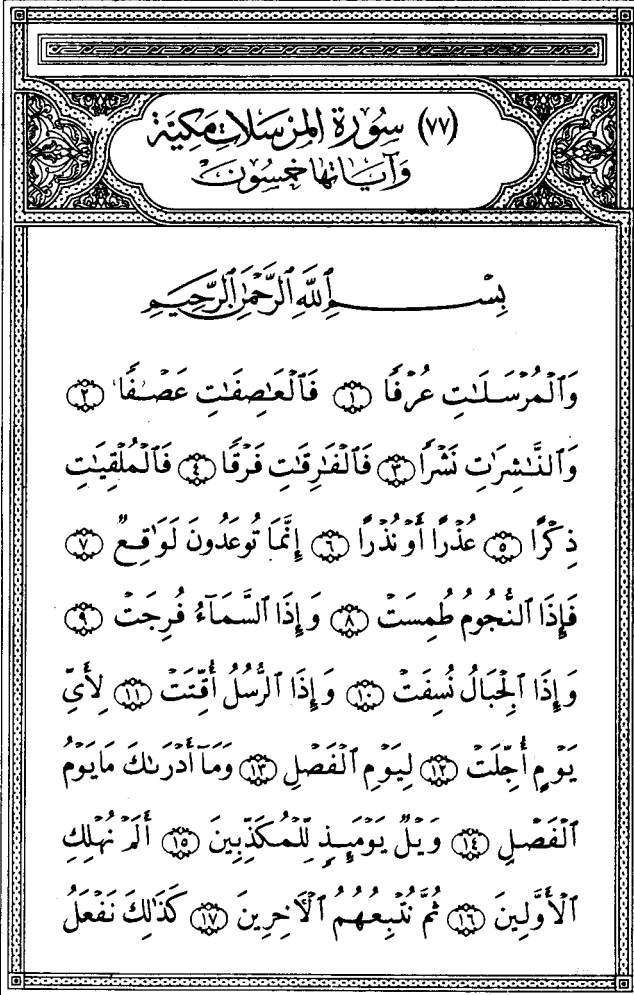 (٧٧) سُورَةُ المُرْسَلَاتِ مَكِيَّة
وَآيَاتهَا خَمْسُونَ
بِسْمِ ٱللَّهِ ٱلرَّحْمَٰنِ ٱلرَّحِيمِ
وَٱلْمُرْسَلَٰتِ عُرْفًا ۝١ فَٱلْعَٰصِفَٰتِ عَصْفًا ۝٢
وَٱلنَّٰشِرَٰتِ نَشْرًا ۝٣ فَٱلْفَٰرِقَٰتِ فَرْقًا ۝٤ فَٱلْمُلْقِيَٰتِ
ذِكْرًا ۝٥ عُذْرًا أَوْ نُذْرًا ۝٦ إِنَّمَا تُوعَدُونَ لَوَٰقِعٌ ۝٧
فَإِذَا ٱلنُّجُومُ طُمِسَتْ ۝٨ وَإِذَا ٱلسَّمَآءُ فُرِجَتْ ۝٩
وَإِذَا ٱلْجِبَالُ نُسِفَتْ ۝١٠ وَإِذَا ٱلرُّسُلُ أُقِّتَتْ ۝١١ لِأَىِّ
يَوْمٍ أُجِّلَتْ ۝١٢ لِيَوْمِ ٱلْفَصْلِ ۝١٣ وَمَآ أَدْرَىٰكَ مَا يَوْمُ
ٱلْفَصْلِ ۝١٤ وَيْلٌ يَوْمَئِذٍ لِّلْمُكَذِّبِينَ ۝١٥ أَلَمْ نُهْلِكِ
ٱلْأَوَّلِينَ ۝١٦ ثُمَّ نُتْبِعُهُمُ ٱلْأَخِرِينَ ۝١٧ كَذَٰلِكَ نَفْعَلُ